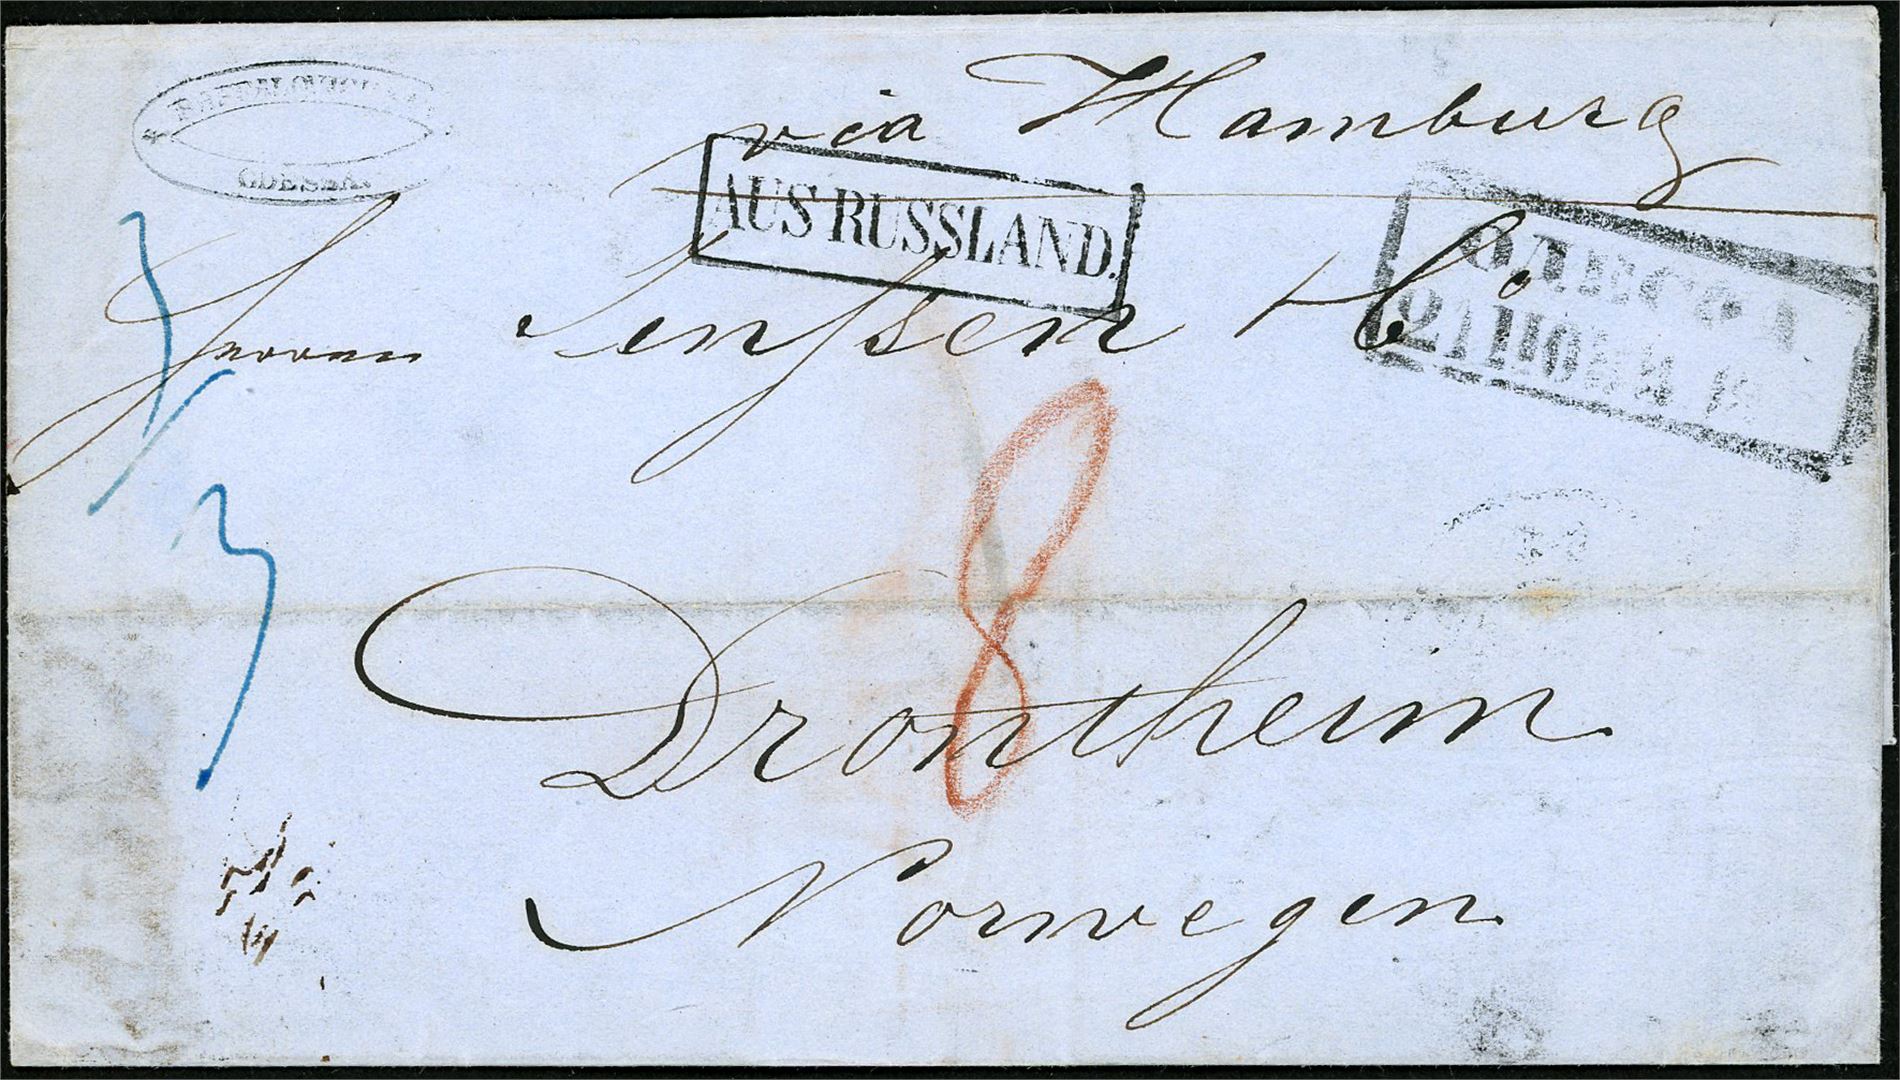 via Hamburg
ODESSA.
AUS RUSSLAND.
ОДЕССА
21 ІЮНЯ
Herren Jenssen & Co
3
3
8
Drontheim
Norwegen